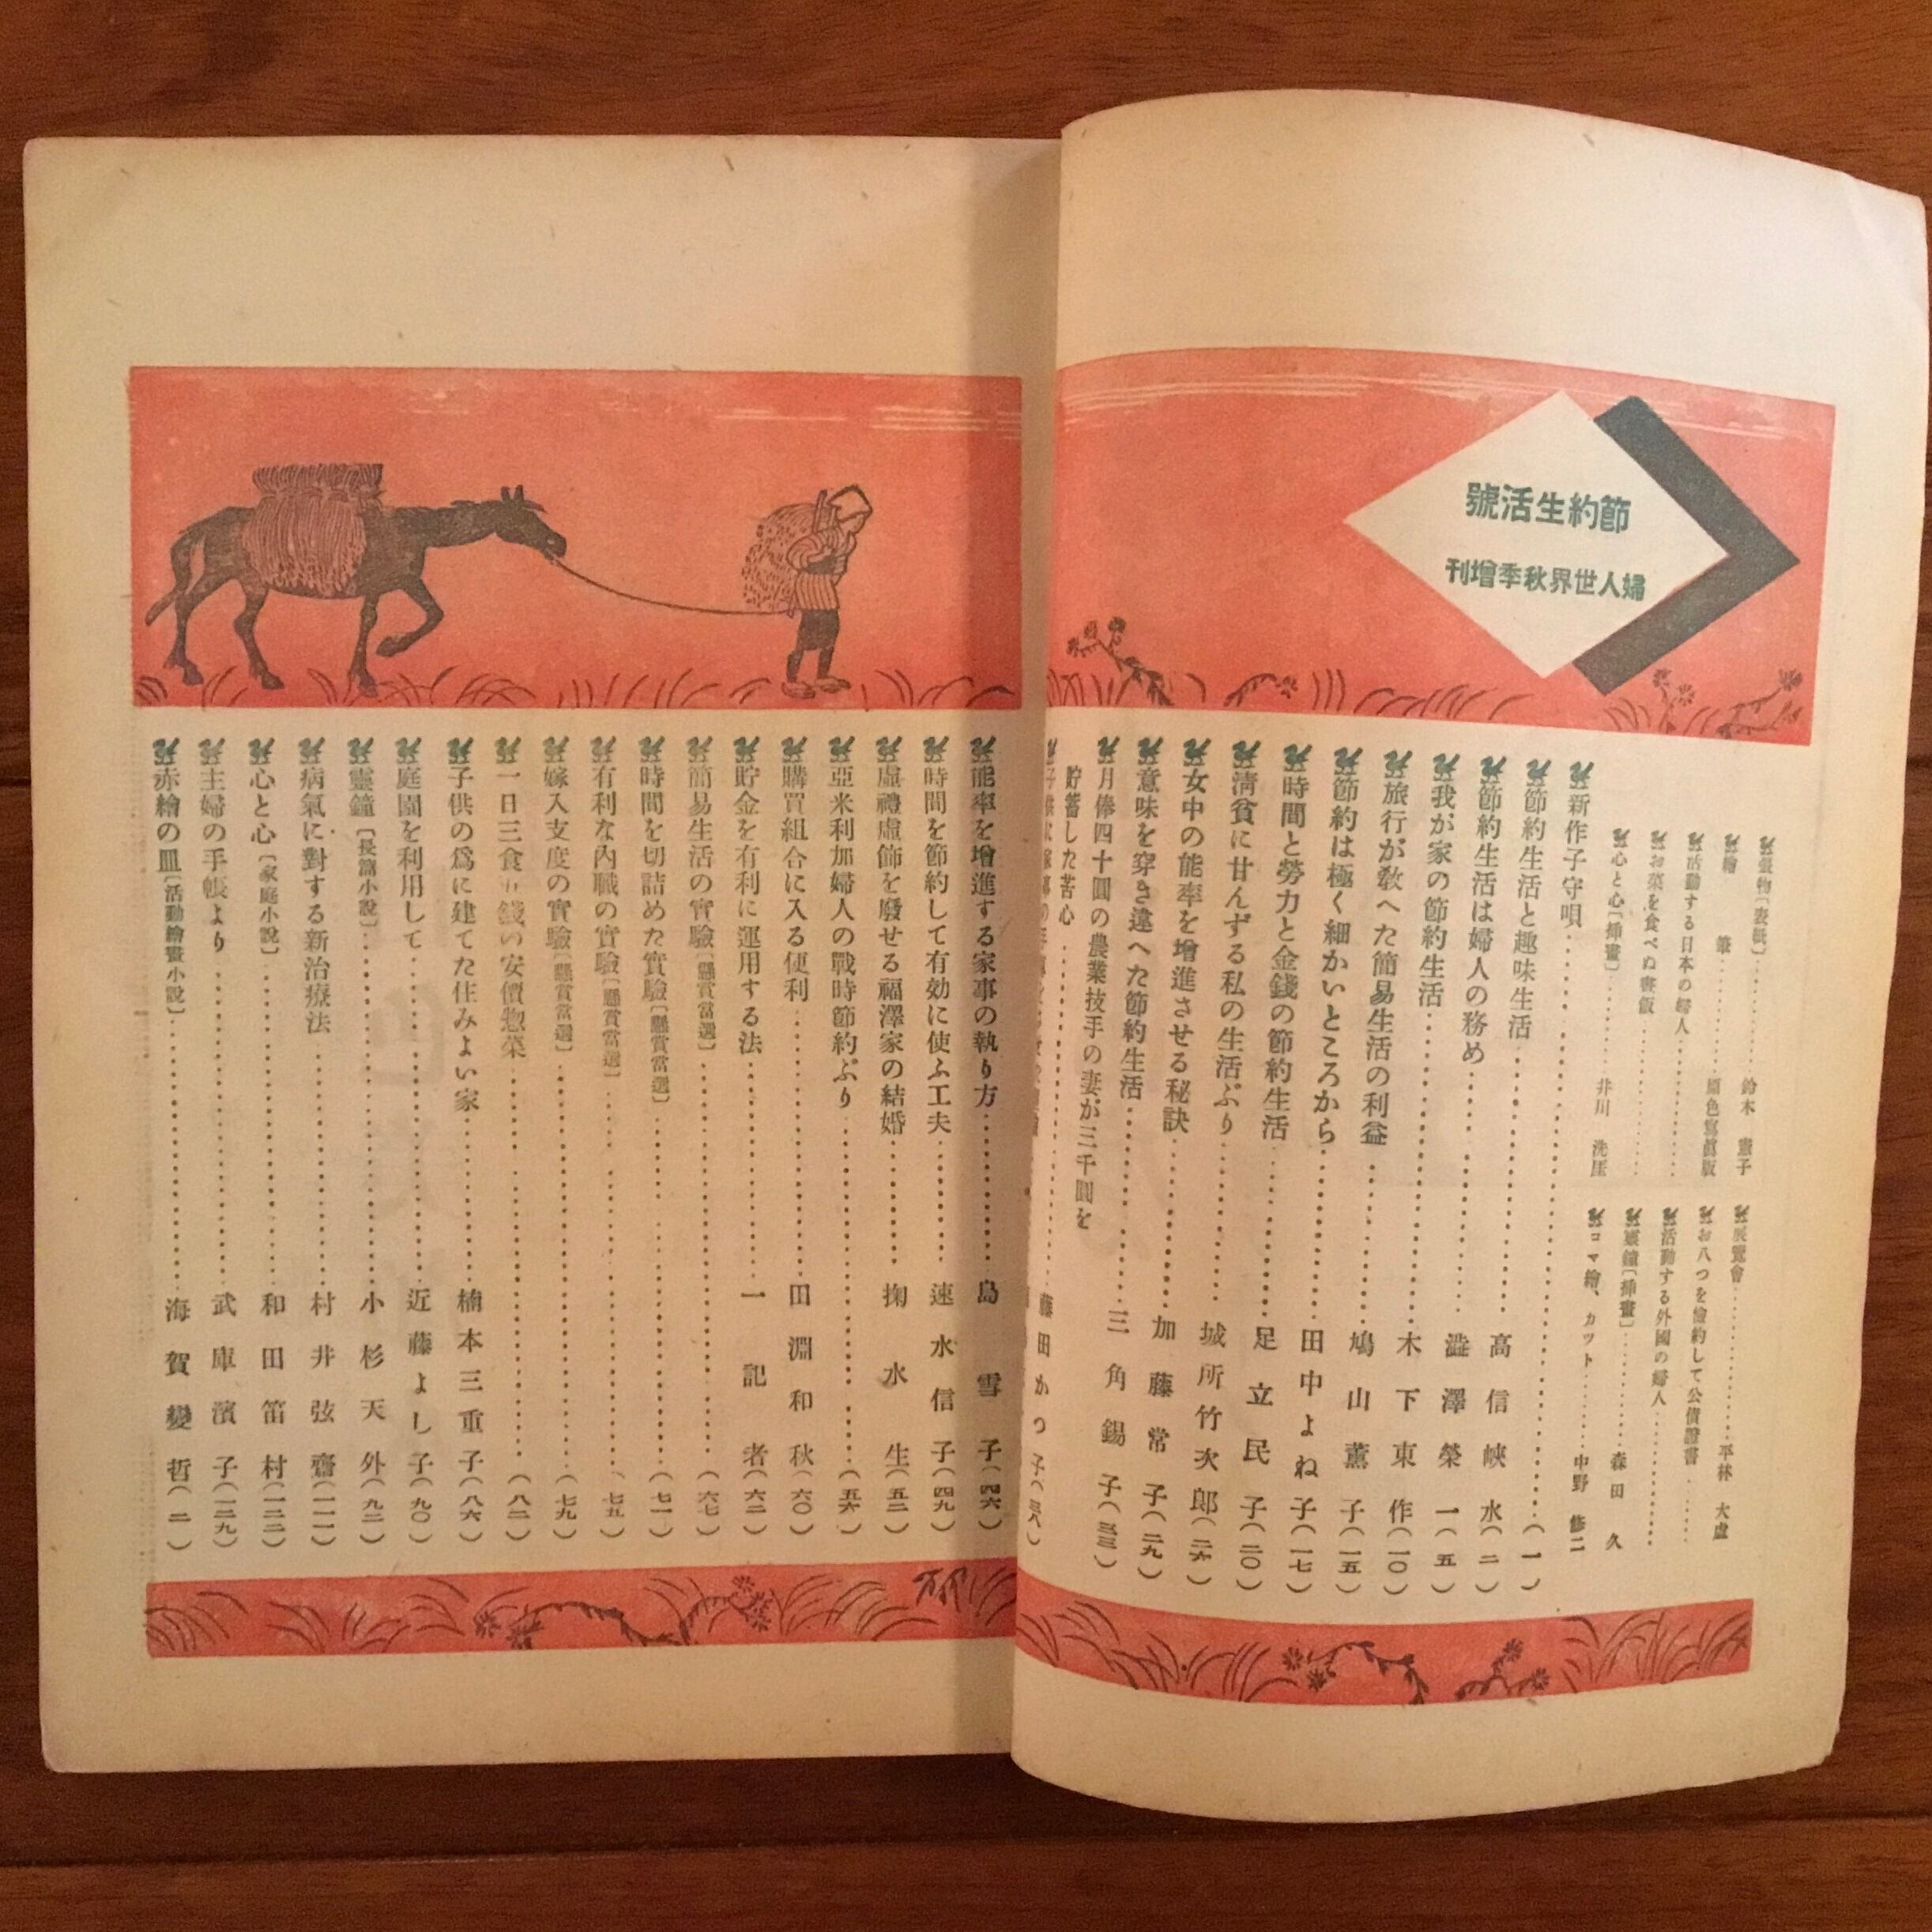 節約生活號
婦人世界秋季增刊
張物〔表紙〕 鈴木
繪 筆 原色寫眞版
活動する日本の婦人
お菜を食べぬ晝飯
心と心〔挿畫〕 井川 洗厓
展覽會 平林 大虚
お八つを儉約して公債證書
活動する外國の婦人
靈鐘〔挿畫〕 森田 久
コマ繪、カット 中野 修二
新作子守唄 (一)
節約生活と趣味生活 高信峽水(二)
節約生活は婦人の務め 澁澤榮一(五)
我が家の節約生活 木下東作(一〇)
旅行が敎へた簡易生活の利益 鳩山薰子(一五)
節約は極く細かいところから 田中よね子(一七)
時間と勞力と金錢の節約生活 足立民子(二〇)
淸貧に甘んずる私の生活ぶり 城所竹次郎(二六)
女中の能率を增進させる秘訣 加藤常子(二九)
意味を穿き違へた節約生活 三角錫子(三三)
月俸四十圓の農業技手の妻が三千圓を
貯蓄した苦心
藤田かつ子(三八)
能率を增進する家事の執り方 島雪子(四六)
時間を節約して有効に使ふ工夫 速水信子(四九)
虛禮虛飾を廢せる福澤家の結婚 掬水生(五二)
亞米利加婦人の戰時節約ぶり (五六)
購買組合に入る便利 田淵和秋(六〇)
貯金を有利に運用する法 一記者(六二)
簡易生活の實驗〔懸賞當選〕 (六七)
時間を切詰めた實驗〔懸賞當選〕 (七一)
有利な內職の實驗〔懸賞當選〕 (七五)
嫁入支度の實驗〔懸賞當選〕 (七九)
一日三食五錢の安價惣菜 (八二)
子供の爲に建てた住みよい家 楠本三重子(八六)
庭園を利用して 近藤よし子(九〇)
靈鐘〔長篇小說〕 小杉天外(九二)
病氣に對する新治療法 村井弦齋(一一一)
心と心〔家庭小說〕 和田笛村(一二二)
主婦の手帳より 武庫濱子(一二九)
赤繪の皿〔活動繪畫小說〕 海賀變哲